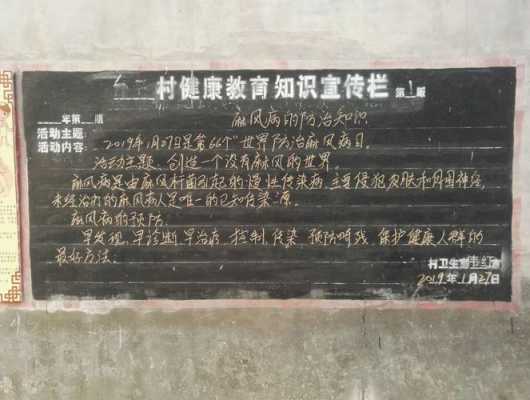 村健康教育知识宣传栏 第1版
年第 期 麻风病的防治知识
活动主题:
活动内容: 2019年1月27日是第66个"世界防治麻风病日。
活动主题、创造一个没有麻风的世界.
麻风病是由麻风杆菌引起的慢性传染病,主要侵犯皮肤和周围神经,
未经治疗的麻风病人是唯一的已知传染源.
麻风病的预防.
早发现,早诊断,早治疗,控制传染,预防畸残,保护健康人群的
最好方法.
村卫生室
2019年1月27日